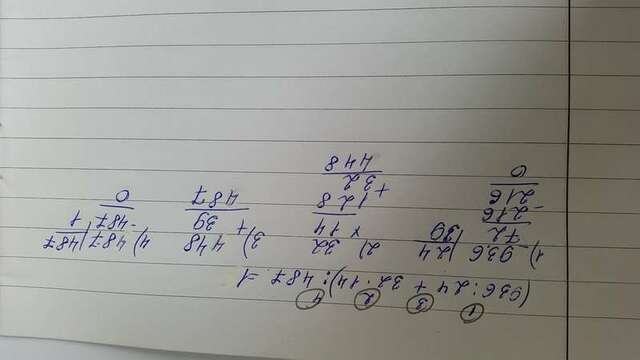 ① ③ ② ④
(936:24 + 32·14):487 = 1
1) -936 |24
72 |39
-216
216
0
2) 32
× 14
128
+32
448
3) 448
+ 39
487
4) 487 |487
-487 |1
0